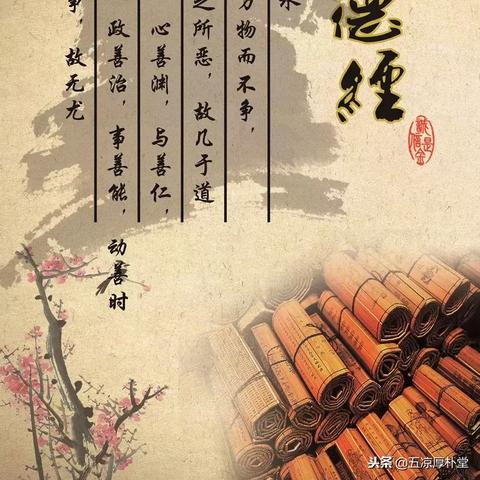 德經
誠信是金
水
万物而不争，
之所恶，故几于道
心善渊，与善仁，
政善治，事善能，动善时
争，故无尤
头条@五凉厚朴堂